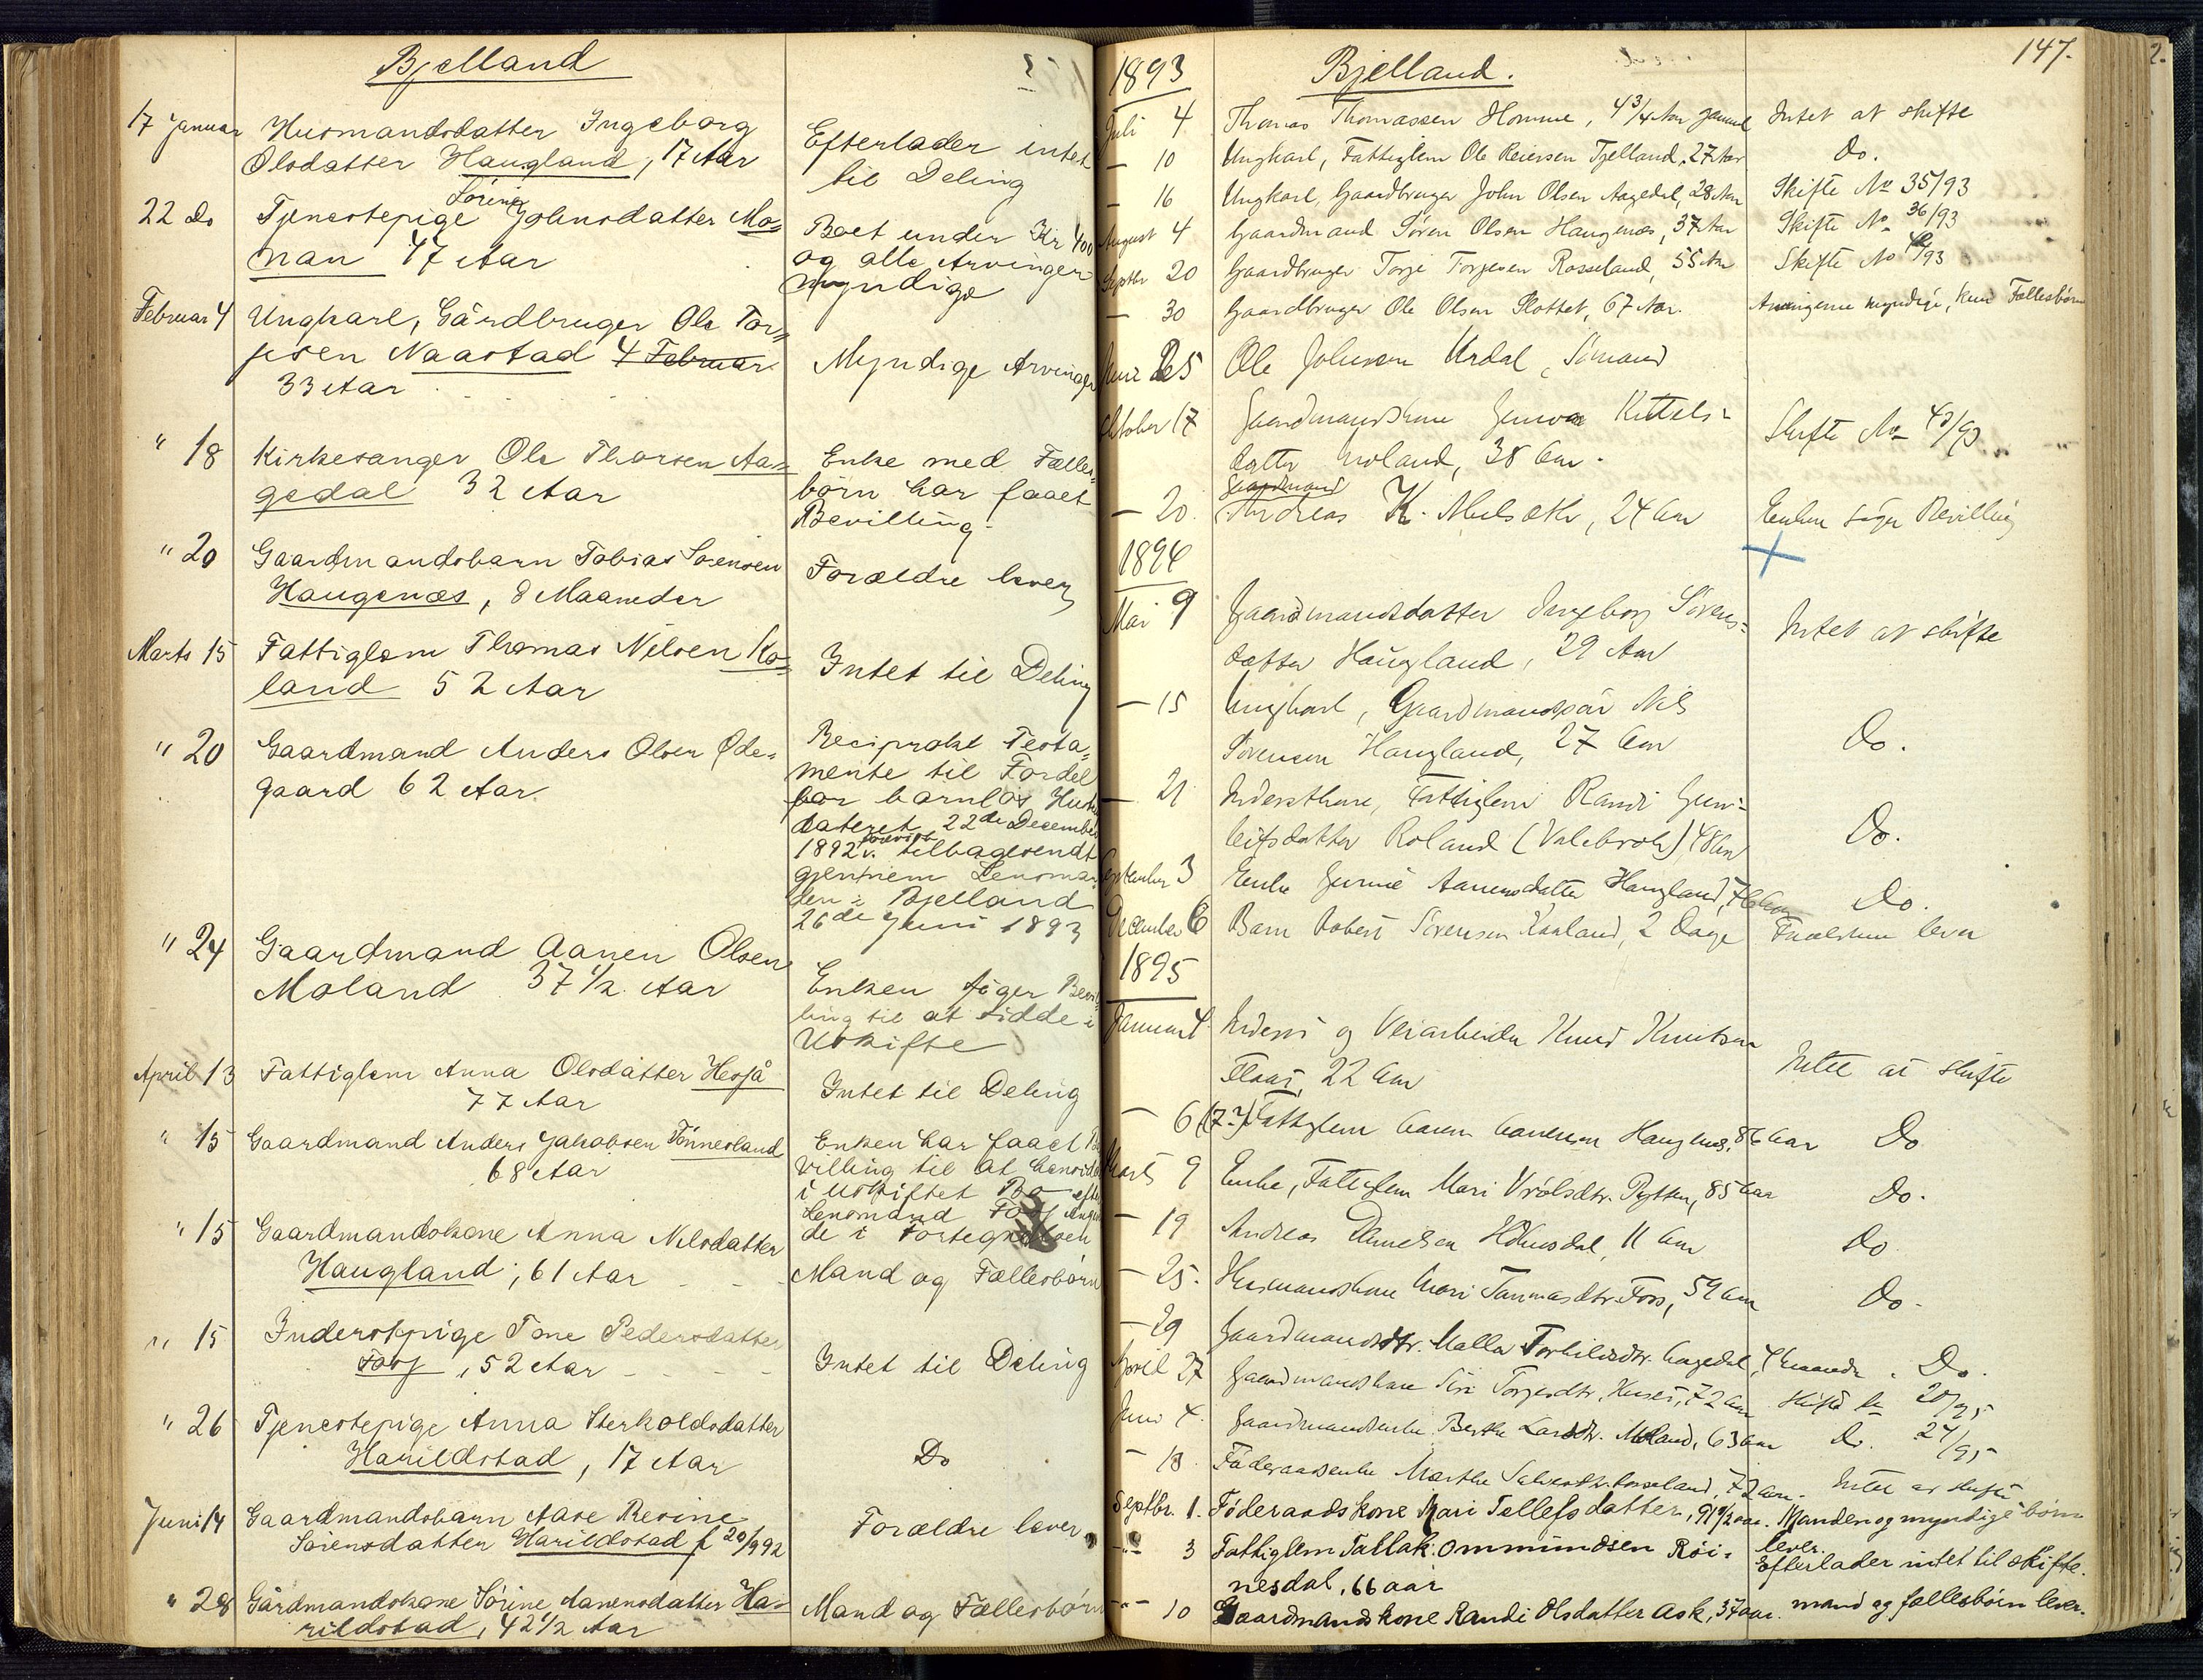 Bjelland
17 Januar Husmandsdatter Ingeborg
Olsdatter Haugland, 17 Aar
Efterlader intet
til Deling
22 Do Tjenestepige Sörine Johnsdatter Mo=
nan 47 Aar
Boet under Kr 400
og alle Arvinger
myndige
Februar 4 Ungkarl, Gårdbruger Ole Tor=
jesen Naastad 4 Februar
33 Aar
Myndige Arvinger
" 18 Kirkesanger Ole Thorsen Aa=
gedal 32 Aar
Enke med Fælles
börn har faaet
Bevilling.
" 20 Gaardmandsbarn Tobias Sørensen
Haugenæs, 8 Maaneder
Forældre lever
Marts 15 Fattiglem Thomas Nilsen Ko=
land 52 Aar
Intet til Deling
" 20 Gaardmand Anders Olsen Øde=
gaard 62 Aar.
Reciprokt Testa=
mente til Fordel
for barnløs Hustru
dateret 22de December
1892
tilbagesendt
gjennem Lensman
den i Bjelland
26de Juni 1893
" 24 Gaardmand Aanen Olsen
Moland 37 1/2 Aar
Enken söger Bevil
ling til at sidde i
Uskifte
April 13 Fattiglem Anna Olsdatter Hesjå
77 Aar
Intet til Deling
" 15 Gaardmand Anders Jakobsen Tönnesland
68 Aar
Enken har faaet Be
villing til at hensidde
i uskiftet Bo efter
Lensmand Foss Angiven
de i Fortegnelsen
" 15 Gaardmandskone Anna Nilsdatter
Haugland, 61 Aar
Mand og Fællesbörn
" 15 Inderstpige Tone Pedersdatter
Foss, 52 Aar
Intet til Deling
" 26 Tjenestepige Anna Sterkoldsdatter
Harildstad, 17 Aar
Do
Juni 14 Gaardmandsbarn Aase Resine
Sörensdatter Harildstad f 20/9 92
Forældre lever
" 28 Gårdmandskone Sörine Aanensdatter Ha=
rildstad, 42 1/2 Aar
Mand og Fællesbörn
147.
1893
Bjelland.
Juli 4 Thomas Thomassen Homme, 4 3/4 Aar gammel Intet at skifte
— 10 Ungkarl, Fattiglem Ole Reiersen Tjelland, 27 Aar Do.
— 16 Ungkarl, Gaardbruger John Olsen Aagedal, 28 Aar Skifte No 35/93
August 4 Gaardmand Sören Olsen Haugenæs, 37 Aar Skifte No 36/93
Septbr 20 Gaardbruger Torje Torjesen Rosseland, 55 Aar Skifte No /93
— 30 Gaardbruger Ole Olsen Slottet, 67 Aar. Arvingerne myndige, kun Fællesbörn
25 Ole Johnsen Urdal, Sömand
Oktober 17 Gaardmandskone Gunvor Kittels=
datter Moland, 38 Aar. Skifte No 43/93
Gaardmand
— 20. Andreas K. Mulsæth, 24 Aar Enken söger Bevilling
1894
Mai 9 Gaardmandsdatter Ingeborg Sörens=
datter Haugland, 29 Aar Intet at skifte
— 15 Ungkarl, Gaardmandssön Nils
Sörensen Haugland, 27 Aar Do.
— 21 Inderstkone, Fattiglem Randi Gun=
leifsdatter Roland (Valebrok) 48 Aar Do.
September 3 Enke Gurine Aanensdatter Haugland, 76 Aar Do.
December 6 Barn Robert Sörensen Kaaland, 2 Dage Forældrene lever
1895
Januar 4. Inderst og Veiarbeider Knud Knutsen
Flaat, 22 Aar Intet at skifte
— 6 (7?) Fattiglem Aanen Aanensen Haugland, 86 Aar Do
Marts 9 Enke, Fattiglem Mari Vrålsdtr. Pytten, 85 Aar Do.
— 19 Andreas Danielsen Holmesdal, 11 Aar Do.
— 25. Husmandskone Mari Tarmasdtr. Foss, 59 Aar Do.
— 29 Gaardmandsdtr. Malla Torkildsdtr. Aagedal, 7 Maaneder. Do.
April 27 Gaardmandskone Siri Torjesdtr. Kuset, 72 Aar Skifte No 20/95
Juni 4. Gaardmandsenke Berthe Larsdtr. Moland, 63 Aar do. 24/95
— 13. Föderaadsenke Marthe Salvesdtr. Rosseland, 72 Aar. Intet at skifte
Septbr. 1. Föderaadskone Mari Tellefsdatter, 91 1/2 aar. Manden og myndige börn
lever.
-"- 3 Fattiglem Tallak Ommundsen Röi=
nesdal, 66 aar Efterlader intet til skifte.
-"- 10 Gaardmandskone Randi Olsdatter Ask, 37 aar. mand og fællesbörn lever.